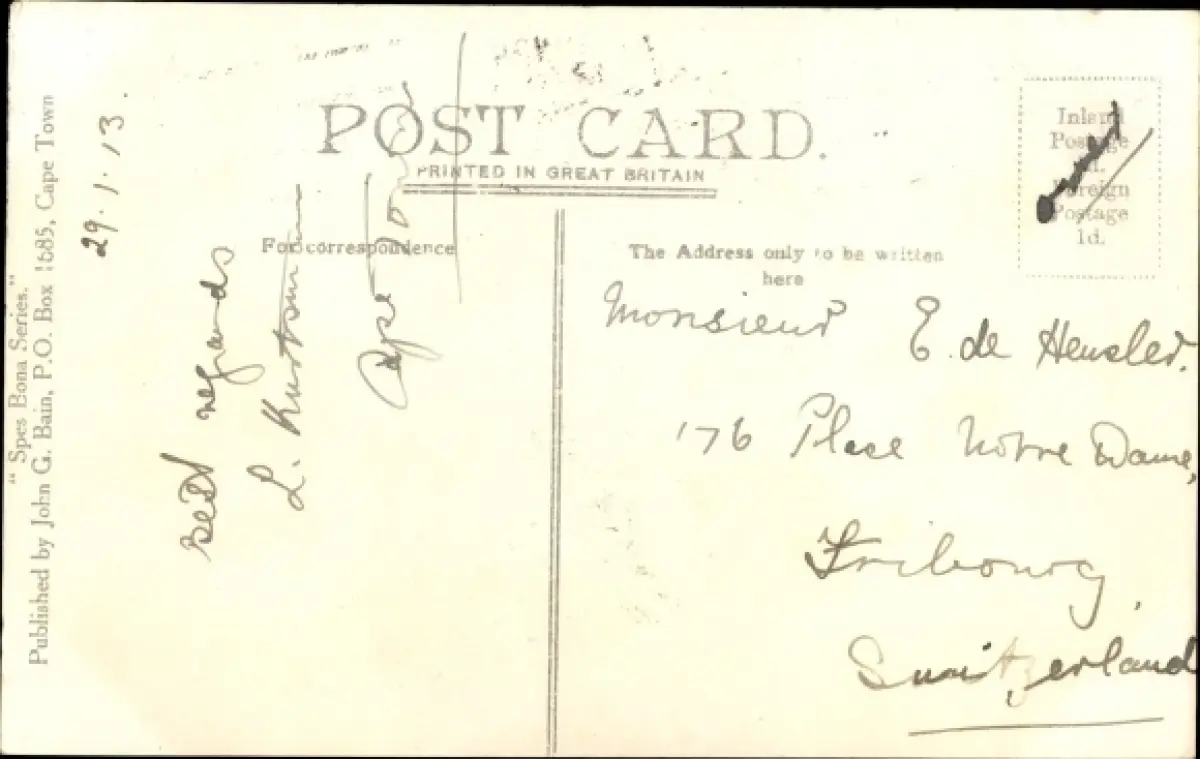 POST CARD.
PRINTED IN GREAT BRITAIN
For correspondence
The Address only to be written
here
Inland
Postage
Foreign
Postage
1d.
"Spes Bona Series."
Published by John G. Bain, P.O. Box 1685, Cape Town
29.1.13.
Best regards
L.
Cape
Monsieur E. de Hensler.
176 Place Notre Dame,
Fribourg,
Switzerland